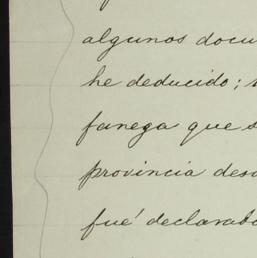 algunos docu
he deducido;
fanega que s
provincia des
fué declarab